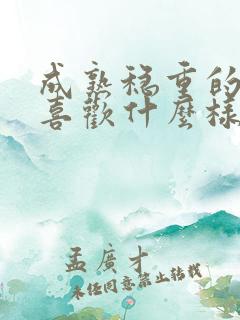 成熟稳重的
喜歡什麼樣
孟廣才
未经同意禁止转载